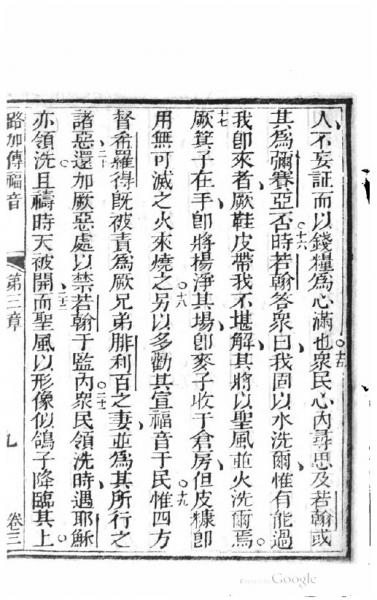 人不妄証而以錢糧為心滿也十五衆民心內尋思及若翰或
其為彌賽亞否十六時若翰答衆曰我固以水洗爾惟有能過
我卽來者厥鞋皮帶我不堪解其將以聖風並火洗爾焉
十七厥箕子在手卽將楊淨其場卽麥子收于倉房但皮糠卽
用無可滅之火來燒之十八另以多勸其宣福音于民十九惟四方
督希羅得既被責為厥兄弟腓利百之妻並為其所行之
諸惡二十還加厥惡處以禁若翰于監內二十一衆民領洗時遇耶穌
亦領洗且禱時天被開二十二而聖風以形像似鴿子降臨其上
路加傳福音 第三章 九 卷三
Google